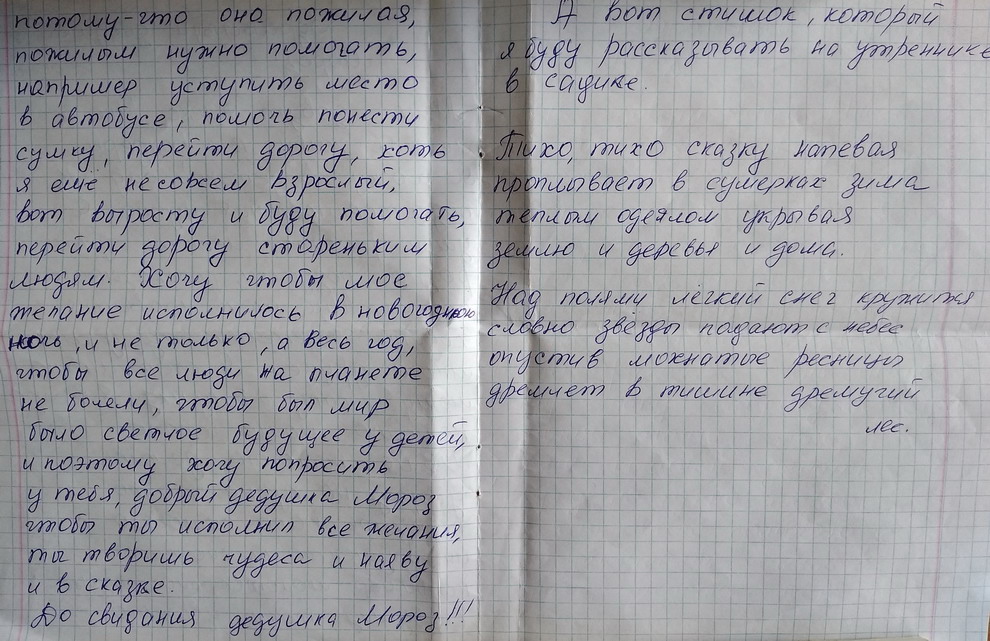 потому-что она пожилая,
пожилым нужно помогать,
например уступить место
в автобусе, помочь понести
сумку, перейти дорогу, хоть
я ещё не совсем взрослый,
вот выросту и буду помогать,
перейти дорогу стареньким
людям. Хочу чтобы мое
желание исполнилось в новогоднюю
ночь, и не только, а весь год,
чтобы все люди на планете
не болели, чтобы был мир
было светлое будущее у детей,
и поэтому хочу попросить
у тебя, добрый дедушка Мороз
чтобы ты исполнил все желания,
ты творишь чудеса и наяву
и в сказке.
До свидания дедушка Мороз!!!
А вот стишок, который
я буду рассказывать на утреннике
в садике.
Тихо, тихо сказку напевая
проплывает в сумерках зима
теплым одеялом укрывая
землю и деревья и дома.
Над полями лёгкий снег кружится
словно звёзды падают с небес
опустив мохнатые ресницы
дремлет в тишине дремучий
лес.